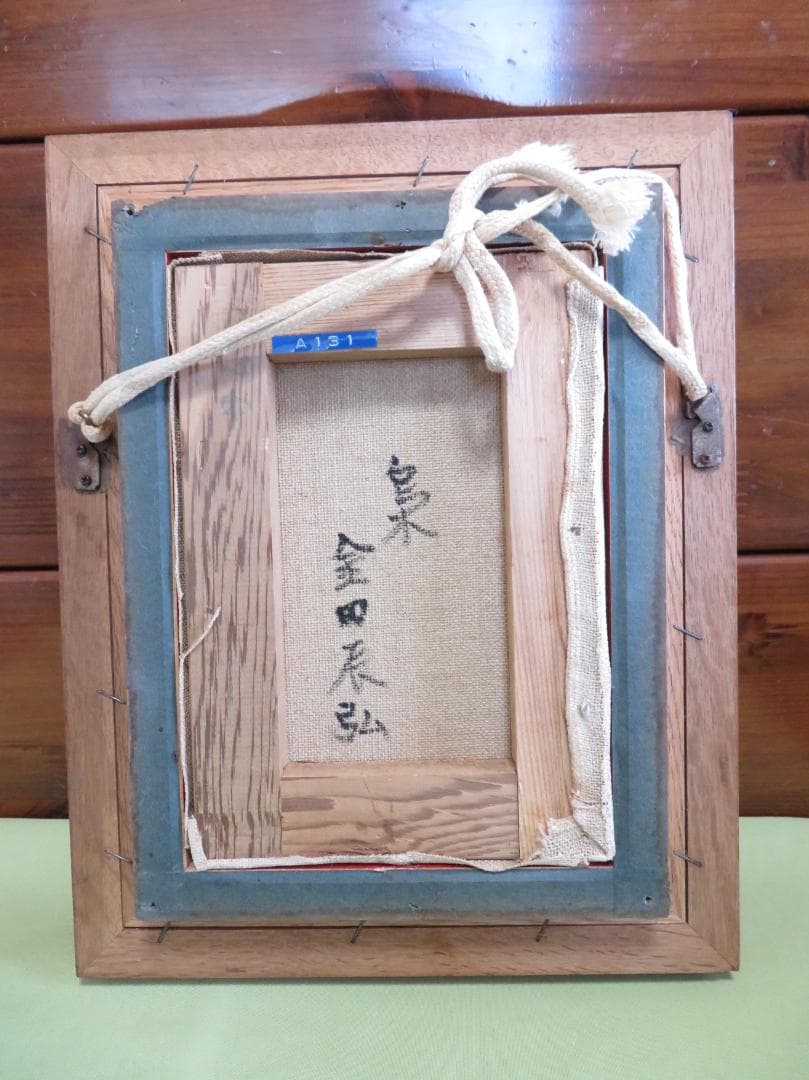 A131
梟
金田辰弘